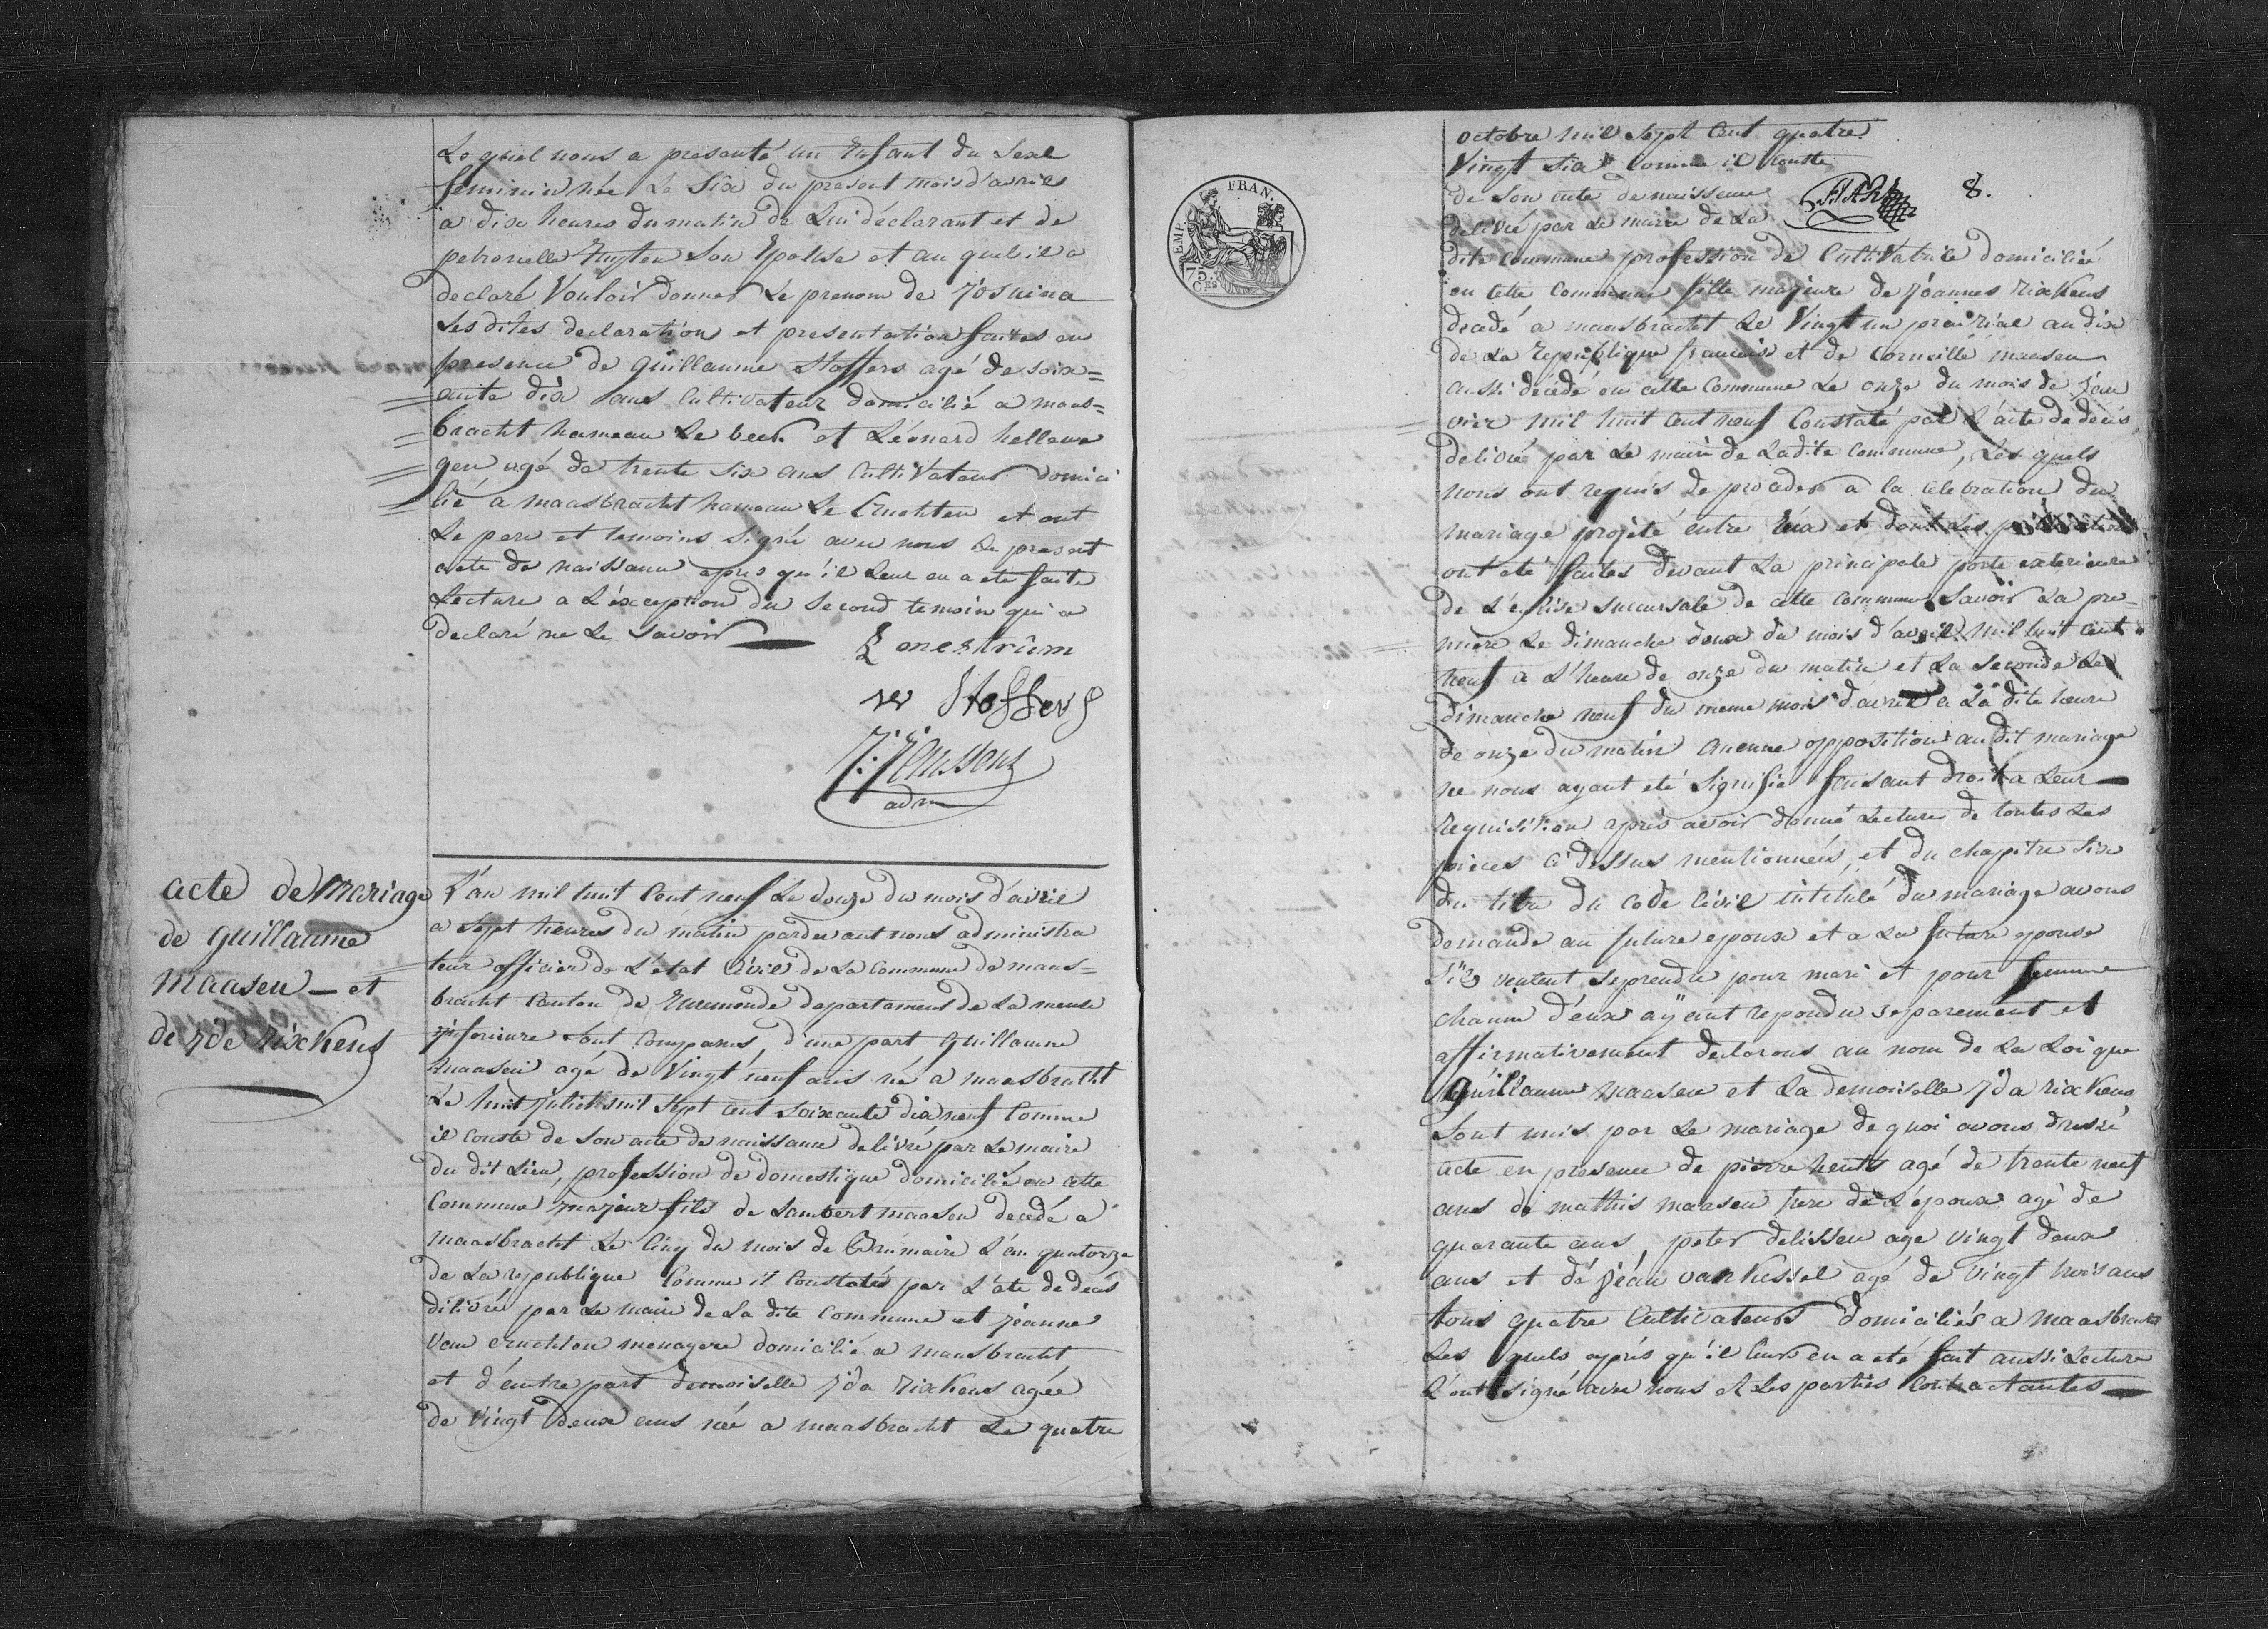 Lequel nous a presenté un Enfant du Sexe
feminin née Le Six du present mois d'avril
a dix heures du matin de Lui déclarant et de
petronelle Son Epouse et au quel il a
declaré Vouloir donner Le prenom de Josuina
Les dites declaration et presentation faites en
presence de guillaume Stoffers agé de soix=
ante dix ans Cultivateur domicilié a maas=
bracht hameau Le beek et Léonard hellewe
gen agé de trente Six ans CultiVateur domici
lié a maasbracht hameau Le Cruchten et ont
Le pere et temoins signé avec nous Le present
acte de naissance apres qu'il Leur en a eté faite
Lecture a L'éxception du Second temoin qui a
declaré ne Le Savoir
Stoffers
J: Janssens
adm
acte de Mariage
de guillaume
Maasen — et
de jda rixkens
L'an mil huit Cent neuf Le douze du mois d'avril
a Sept heures du matin pardevant nous administra
teur officier de L'état Civil de La Commune de maas=
bracht Canton de Ruremonde departement de La meuse
jnferieure Sont Comparus, d'une part guillaume
maasen agé de Vingt neuf ans né a maasbracht
Le huit juliet mil Sept cent soixante dix neuf Comme
il conste de Son acte de naissance delivré par Le maire
du dit Lieu, profession de domestique domicilié en cette
Commune majeur fils de Lambert maasen decedé a
maasbracht Le Cinq du mois de Brumaire L'an quatorze
de La republique Comme il Constatés par L'ate de deces
delivré par Le maire de La dite Commune et jeanne
Van Cruchten menagere domicilié a maasbracht
et d'éautre part demoiselle jda rixkens agée
de Vingt deux ans née a maasbracht Le quatre
EMP. FRAN.
75.
CES
octobre mil Sept Cent quatre
Vingt Six Comme il Conste
de Son acte de naissance
delivré par Le maire de La
8.
dite Commune profession de CultiVatrice domiciliée
en cette Commune fille majeure de Joannes rixkens
decedé a maasbracht Le Vingt un prairial an dix
de La republique francaise et de Corneille maasen
aussi décédé en cette Commune Le onze du mois de jan
vier mil huit Cent neuf Constaté par L'acte de deces
delivré par Le maire de Ladite Commune, Les quels
nous ont requis de proceder a la celebration du
mariage projeté entre Eux et dont Les
ont été faites devant La principale porte exterieure
de L'eglise succursale de cette Commune Savoir La pre=
miere Le dimanche deux du mois d'avril mil huit Cent
neuf a L'heure de onze du matin et La seconde Le
dimanche neuf du meme mois d'avril a La dite heure
de onze du matin aucune opposition au dit mariage
ne nous ayant eté Signifié faisant droit a Leur
requisition apres avoir donné Lecture de toutes Les
pieces ci dessus mentionneés, et du chapitre Six
du titre du code Civil intitulé du mariage avons
demande au future epoux et a La future epouse
S'ils veulent Seprendre pour mari et pour femme
chacun d'eux aÿant repondu Separement et
affirmativement declarons au nom de La Loi que
Guillaume Maasen et La demoiselle jda rixkens
Sont unis par Le mariage de quoi avons dressé
acte en presence de pierre agé de trente neuf
ans de mathis maasen frere de L'époux agé de
quarante ans, peter delissen age Vingt deux
ans et de jean van Kessel agé de Vingt trois ans
tous quatre Cultivateurs domiciliés a maasbracht
Les quels aprés qu'il Leurs en a eté fait aussi Lecture
L'ont signé avec nous et Les parties Contractantes